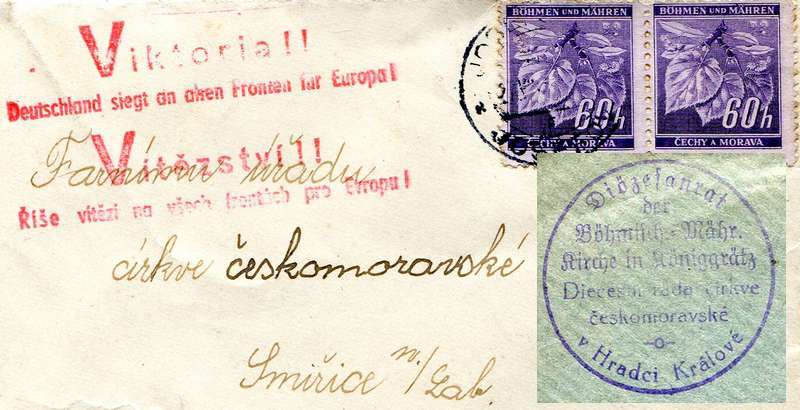 Viktoria!!
Deutschland siegt an allen Fronten für Europa!
Vítězství!!
Říše vítězí na všech frontách pro Evropu!
Farnímu úřadu
církve českomoravské
Smiřice n/Lab.
BÖHMEN UND MÄHREN
60h
ČECHY A MORAVA
BÖHMEN UND MÄHREN
60h
ČECHY A MORAVA
Diözesanrat
der
Böhmisch-Mähr.
Kirche in Königgrätz
Diecésní rada církve
českomoravské
-o-
v Hradci Králové